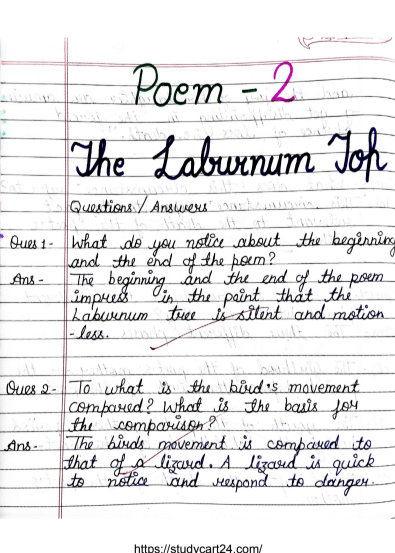 Poem - 2
The Laburnum Top
Questions/Answers
Ques 1- What do you notice about the beginning
and the end of the poem?
Ans- The beginning and the end of the poem
impress in the point that the
Laburnum tree is silent and motion
-less.
Ques 2- To what is the bird's movement
compared? What is the basis for
the comparison?
Ans- The birds movement is compared to
that of a lizard. A lizard is quick
to notice and respond to danger.
https://studycart24.com/